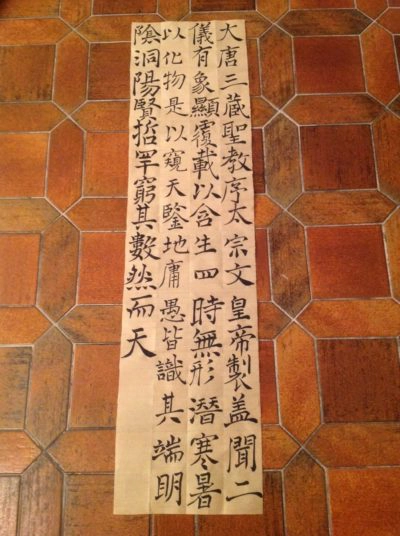 大唐三蔵聖教序太宗文皇帝製盖聞二
儀有象顯覆載以含生四時無形潛寒暑
以化物是以窺天鑒地庸愚皆識其端明
陰洞陽賢哲罕窮其數然而天